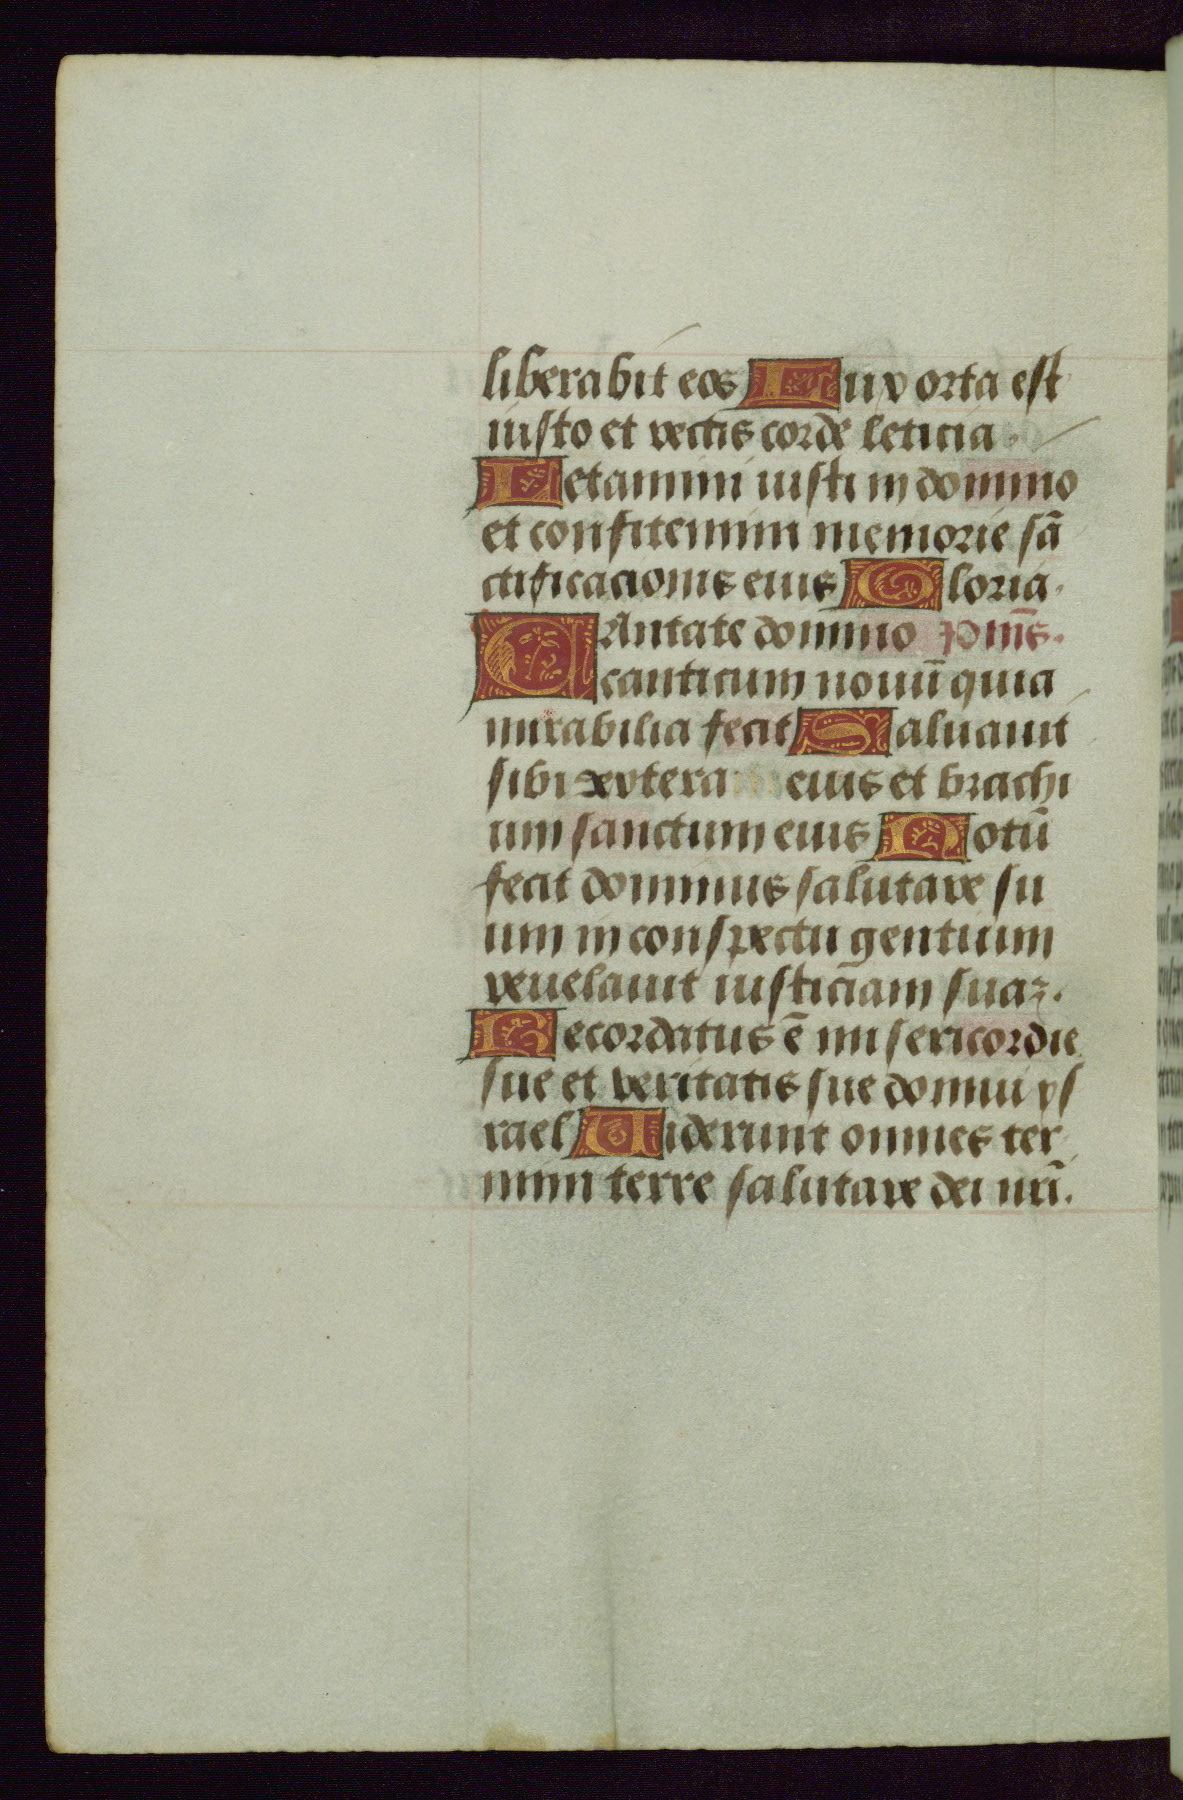 liberabit eos Lux orta est
iusto et rectis corde leticia.
Letamini iusti in domino
et confitemini memorie sā
ctificacionis eius Gloria.
CAntate domino ps̄
canticum nouū quia
mirabilia fecit Saluauit
sibi dextera eius et brachi
um sanctum eius Notū
fecit dominus salutare su
um in conspectu gentium
reuelauit iusticiam suaꝫ.
Recordatus ē misericordie
sue et veritatis sue domui ys
rael Uiderunt omnes ter
mini terre salutare dei nr̄i.